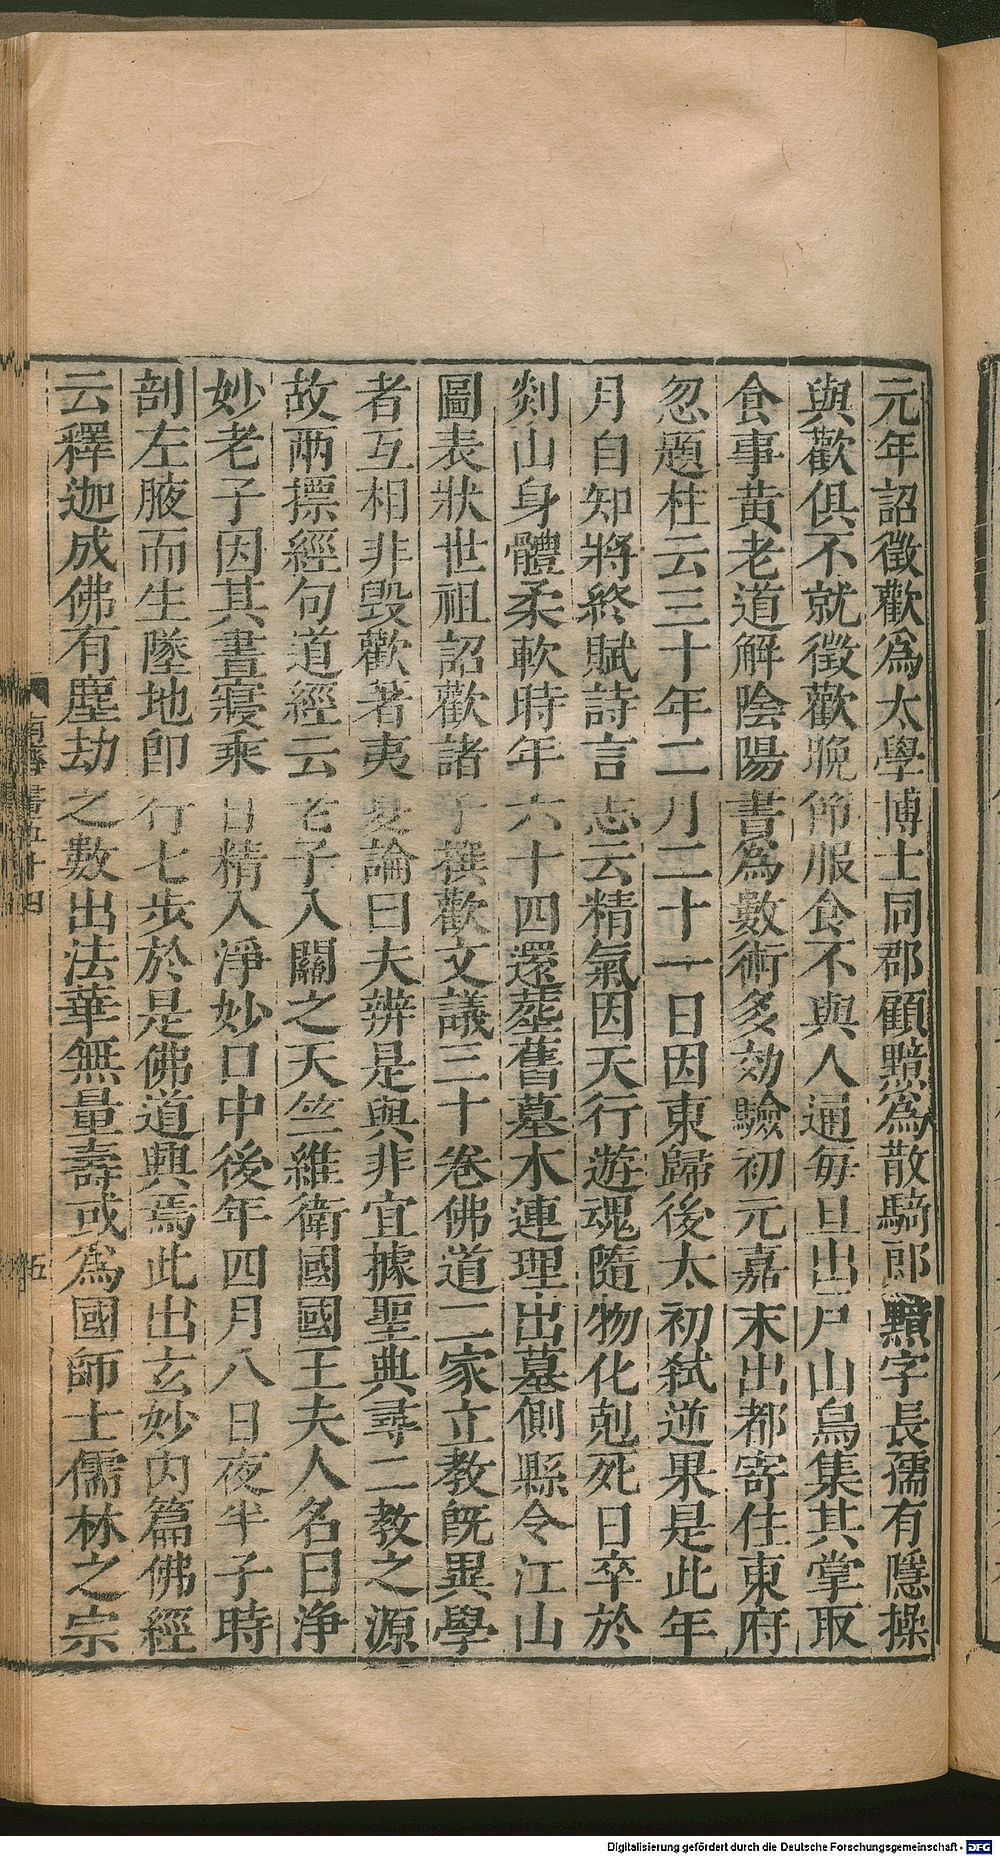 元年詔徵歡爲太學博士同郡顧黯爲散騎郎黯字長孺有隱操
與歡俱不就徵歡晚節服食不與人通每旦出戶山鳥集其掌取
食事黃老道解陰陽書爲數術多効驗初元嘉末出都寄住東府
忽題柱云三十年二月二十一日因東歸後太初弑逆果是此年
月自知將終賦詩言志云精氣因天行遊魂隨物化剋死日卒於
剡山身體柔軟時年六十四還葬舊墓木連理出墓側縣令江山
圖表狀世祖詔歡諸子撰歡文議三十卷佛道二家立教旣異學
者互相非毀歡著夷夏論曰夫辨是與非宜據聖典尋二教之源
故兩摽經句道經云老子入關之天竺維衛國國王夫人名曰淨
妙老子因其晝寢乘日精入淨妙口中後年四月八日夜半子時
剖左腋而生墜地卽行七步於是佛道興焉此出玄妙內篇佛經
云釋迦成佛有塵劫之數出法華無量壽或爲國師士儒林之宗
南齊書五十四
五
Digitalisierung gefördert durch die Deutsche Forschungsgemeinschaft - DFG